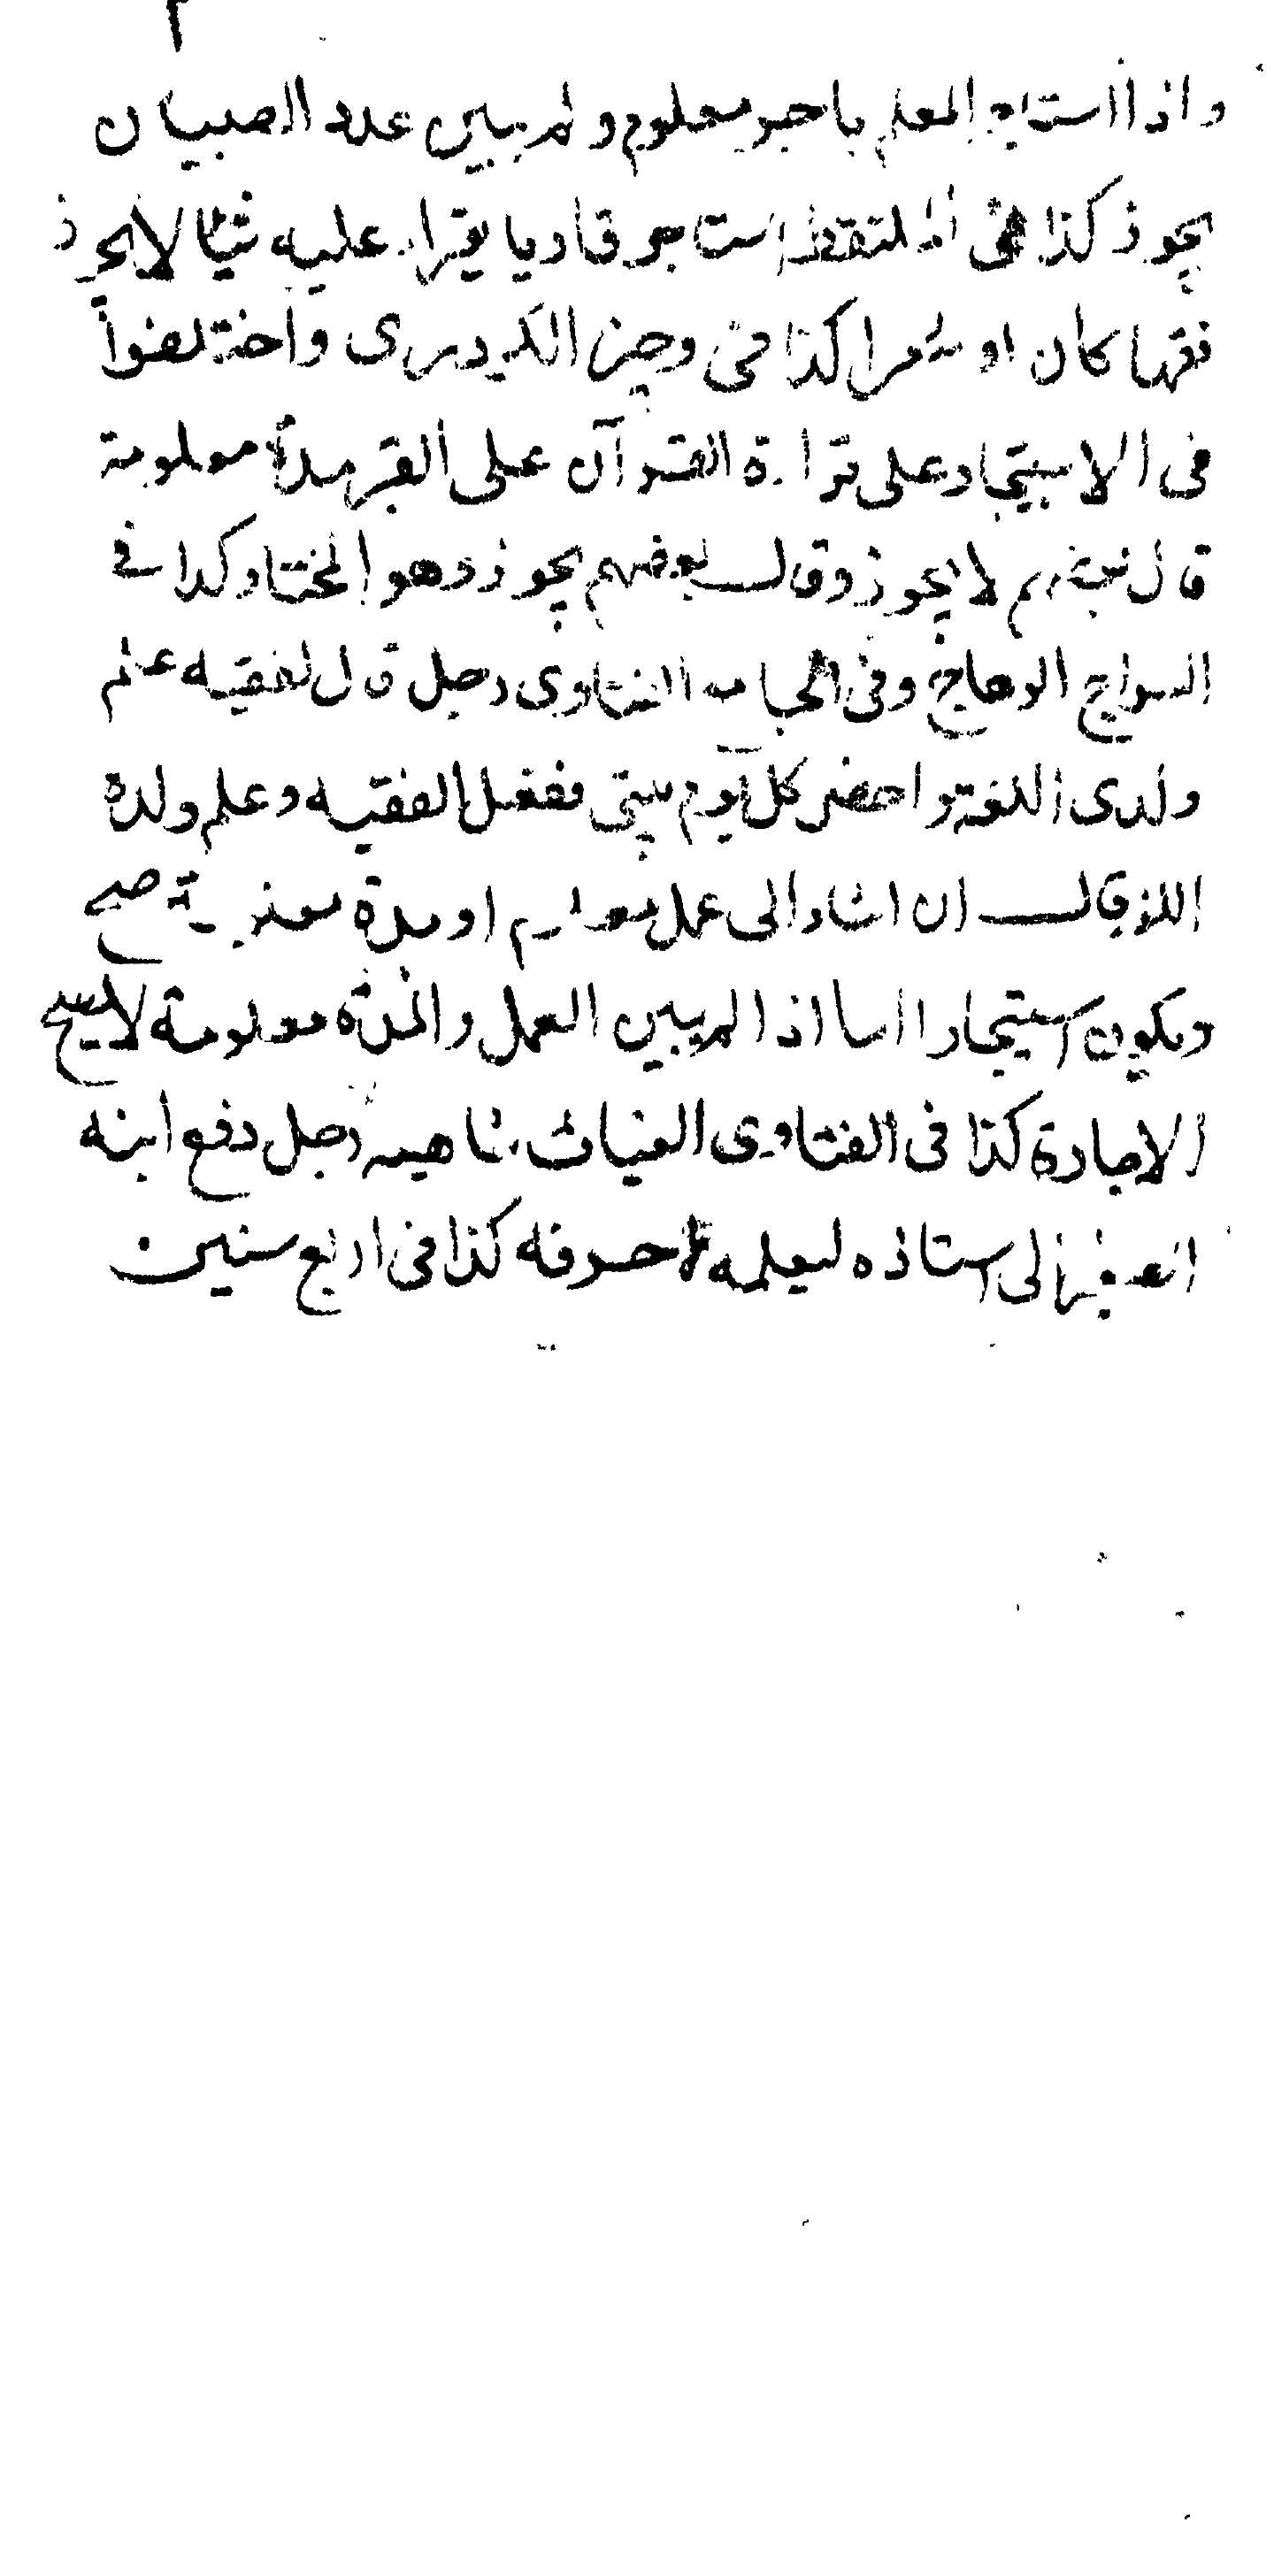 واذا استاجر المعلم باجر معلوم ولم يبين عدد الصبيان
يجوز كذا فى الملتقط استاجر قاريا يقرا عليه شيئا لا يجوز
فقها كان او شعرا كذا فى وجيز الكردرى واختلفوا
فى الاستيجار على قراءة القرآن على القبر مدة معلومة
قال بعضهم لا يجوز وقال بعضهم يجوز وهو المختار كذا فى
السراج الوهاج وفى الفتاوى رجل قال لفقيه علم
ولدى اللغة واحضر كل يوم بيتى ففعل الفقيه وعلم ولده
قال ان اشار الى عمل معلوم او مدة صح
ويكون استيجارا اما اذا لم يبين العمل والمدة معلومة لا يصح
الاجارة كذا فى الفتاوى الغياثية رجل دفع ابنه
الصغير الى استاذه ليعلمه حرفة كذا فى اربع سنين